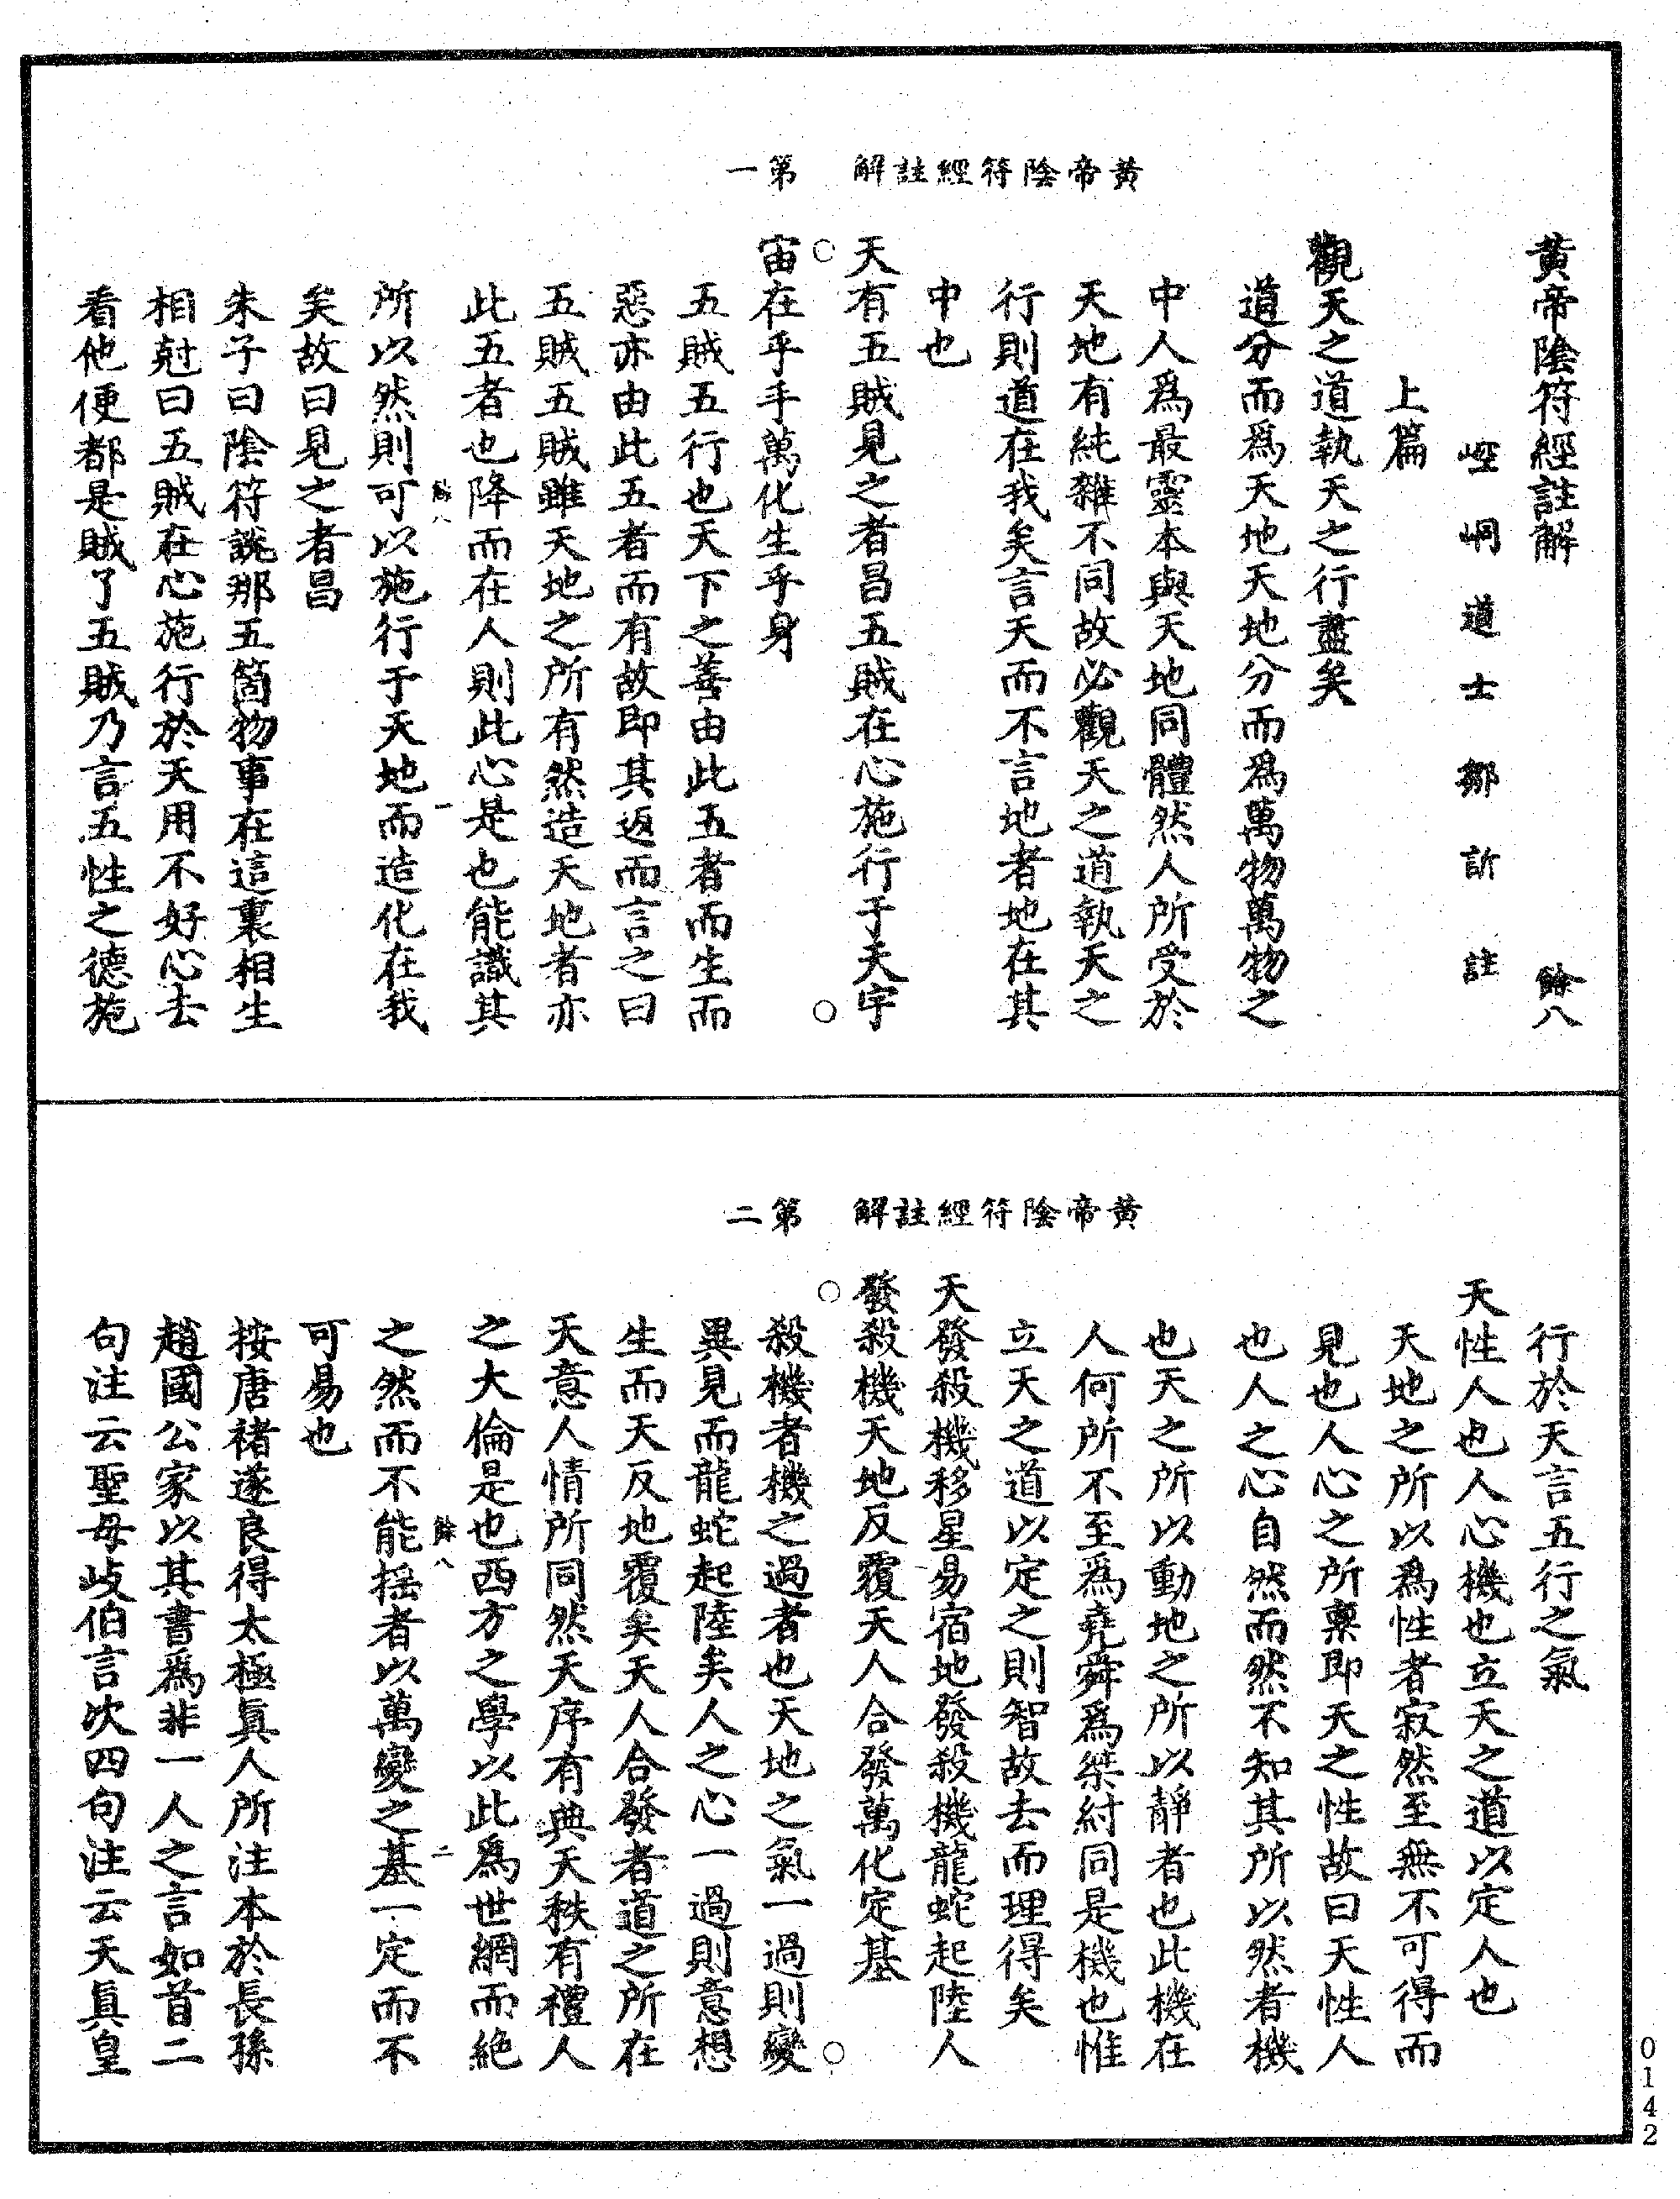 黃帝陰符經註解　第一
黃帝陰符經註解　餘八
崆峒道士鄒訢註
上篇
觀天之道執天之行盡矣
道分而爲天地天地分而爲萬物萬物之
中人爲最靈本與天地同體然人所受於
天地有純雜不同故必觀天之道執天之
行則道在我矣言天而不言地者地在其
中也
天有五賊見之者昌五賊在心施行于天宇
宙在乎手萬化生乎身
五賊五行也天下之善由此五者而生而
惡亦由此五者而有故即其返而言之曰
五賊五賊雖天地之所有然造天地者亦
此五者也降而在人則此心是也能識其
餘八　一
所以然則可以施行于天地而造化在我
矣故曰見之者昌
朱子曰陰符說那五箇物事在這裏相生
相尅曰五賊在心施行於天用不好心去
看他便都是賊了五賊乃言五性之德施
黃帝陰符經註解　第二
行於天言五行之氣
天性人也人心機也立天之道以定人也
天地之所以爲性者寂然至無不可得而
見也人心之所稟即天之性故曰天性人
也人之心自然而然不知其所以然者機
也天之所以動地之所以靜者也此機在
人何所不至爲堯舜爲桀紂同是機也惟
立天之道以定之則智故去而理得矣
天發殺機移星易宿地發殺機龍蛇起陸人
發殺機天地反覆天人合發萬化定基
殺機者機之過者也天地之氣一過則變
異見而龍蛇起陸矣人之心一過則意想
生而天反地覆矣天人合發者道之所在
天意人情所同然天序有典天秩有禮人
之大倫是也西方之學以此爲世網而絶
餘八　二
之然而不能揺者以萬變之基一定而不
可易也
按唐褚遂良得太極眞人所注本於長孫
趙國公家以其書爲非一人之言如首二
句注云聖母岐伯言次四句注云天眞皇
0142